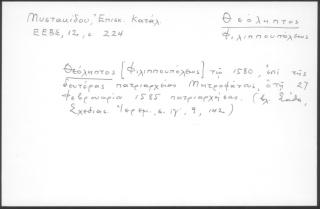 Μυστακίδου, Ἐπισκ. Κατάλ.
ΕΕΒΣ, 12, σ 224
Θεόληπτος
Φιλιππουπόλεως
Θεόληπτος [Φιλιππουπόλεως] τῷ 1580, ἐπὶ τῆς
δευτέρας πατριαρχείας Μητροφάνους, ὁ τῇ 27
Φεβρουαρίου 1585 πατριαρχήσας. (βλ. Σάθα,
Σχεδίασ. Ἱερεμ., σ. ιγ΄, 9, 142)